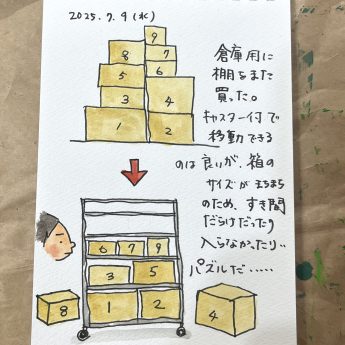 2025.7.9(水)
9
8 7
5 6
3 4
1 2
倉庫用に
棚をまた
買った。
キャスター付で
移動できる
のは良いが、箱の
サイズがまちまち
のため、すき間
だらけだったり
入らなかったり‥
パズルだ‥‥‥
6 7 9
3 5
8 1 2 4